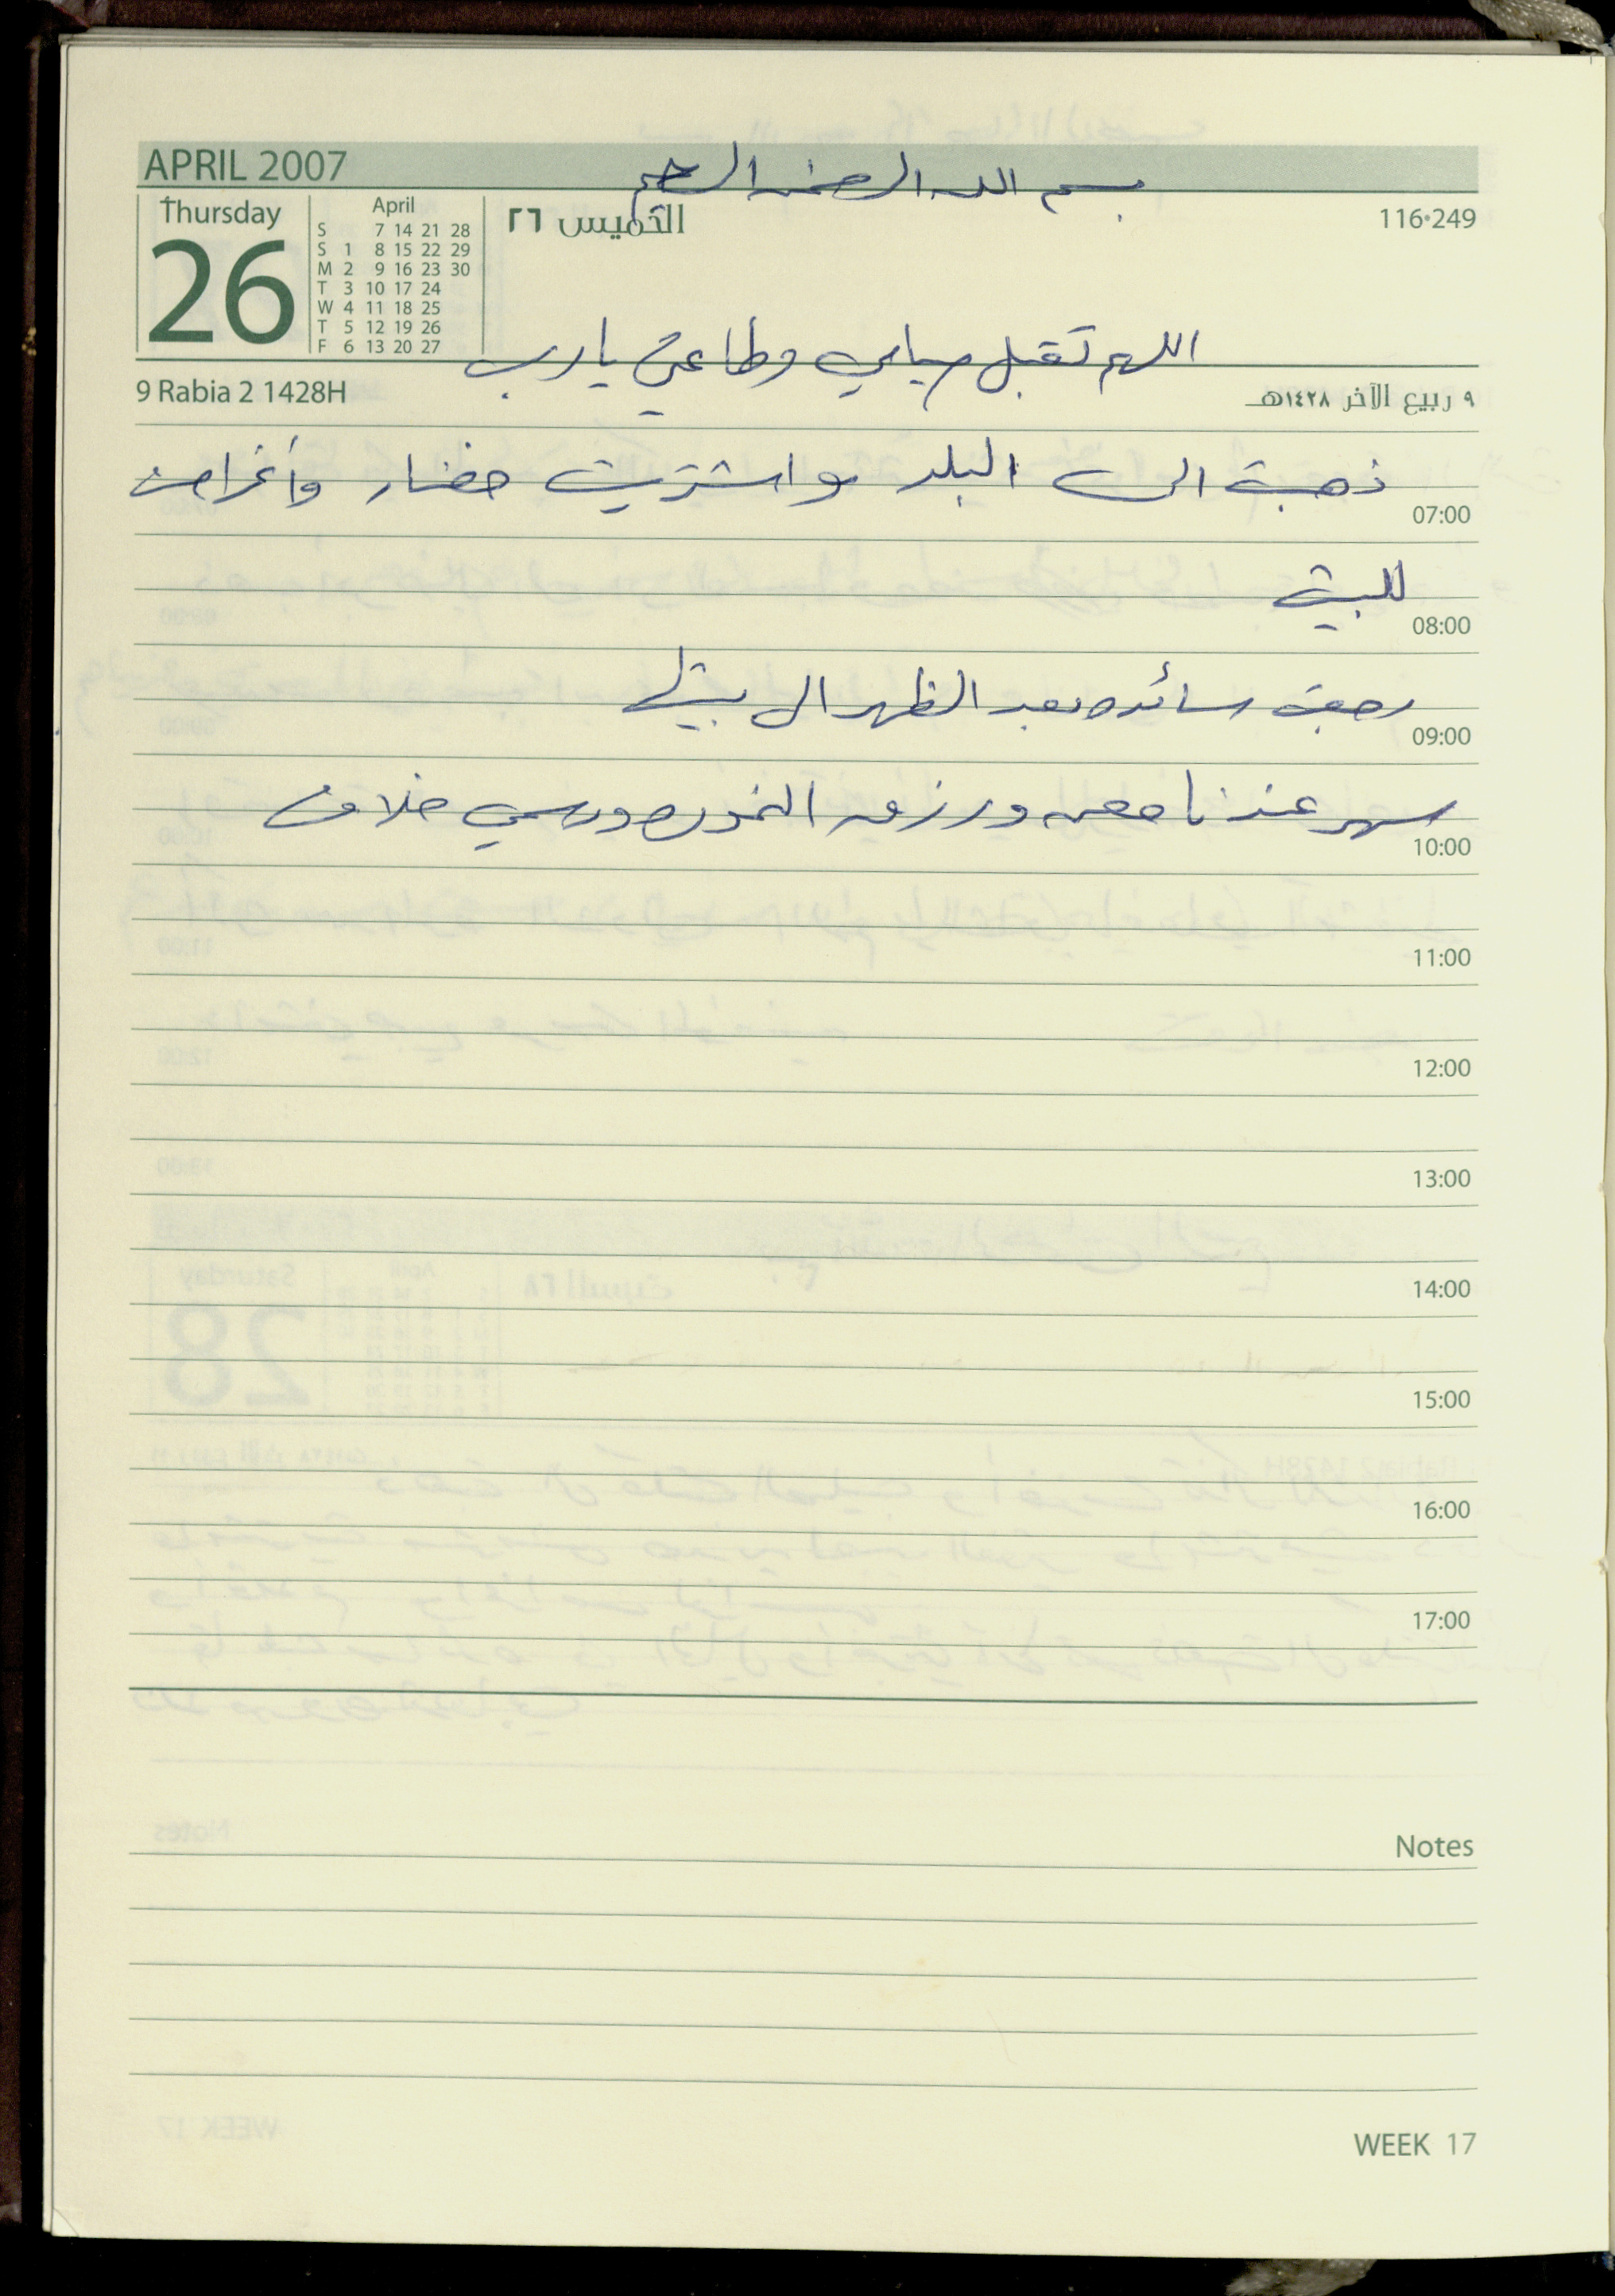 APRIL 2007
بسم الله الرحمن الرحيم
Thursday
26
April
S 7 14 21 28
S 1 8 15 22 29
M 2 9 16 23 30
T 3 10 17 24
W 4 11 18 25
T 5 12 19 26
F 6 13 20 27
الخميس ٢٦
116•249
اللهم تقبل صيامي وطاعتي يا رب
9 Rabia 2 1428H
٩ ربيع الآخر ١٤٢٨هـ
ذهبت الى البلد واشتريت خضار وأغراض
07:00
للبيت
08:00
رجعت سائده بعد الظهر الى بيتها
09:00
سهر عندنا معن ورزق
10:00
11:00
12:00
13:00
14:00
15:00
16:00
17:00
Notes
WEEK 17